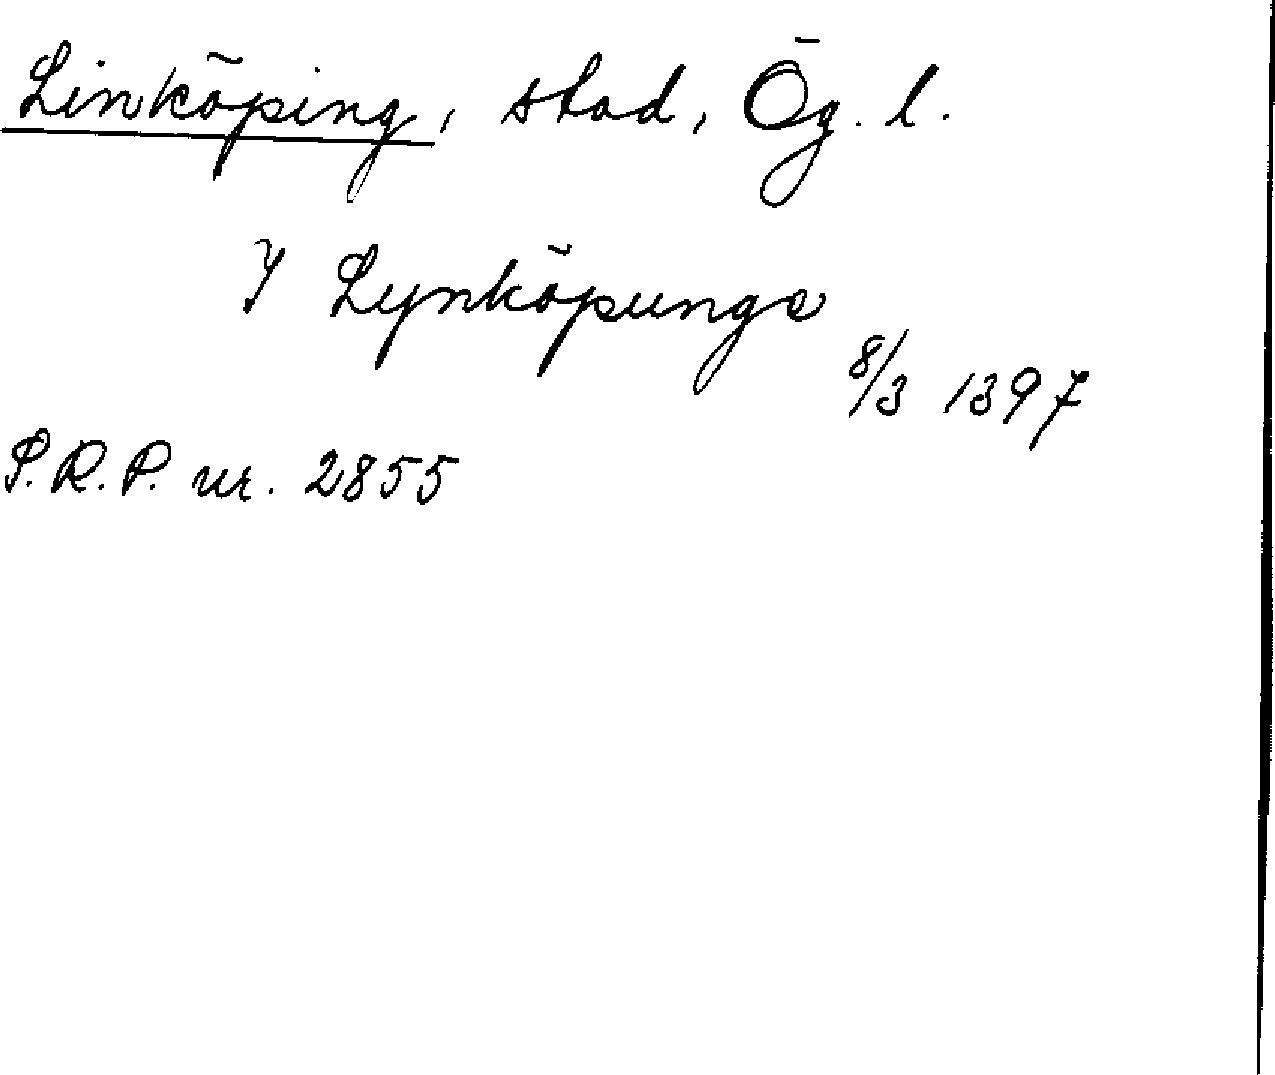 Linköping, stad, Ög. l.
Y Lynköpunge
8/3 1397
P.R.P. nr. 2855